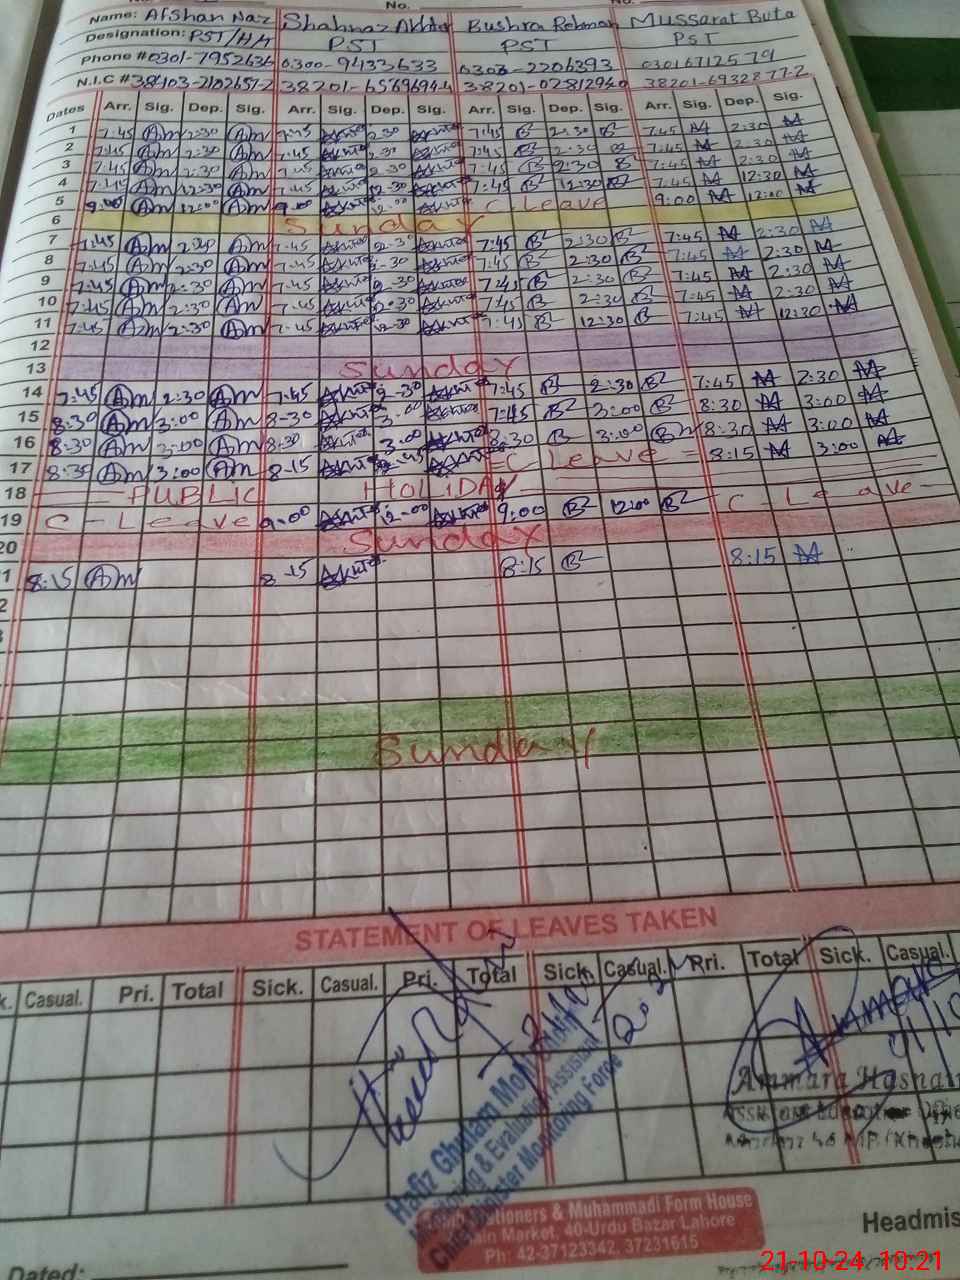 No.
Name: Afshan Naz Shahnaz Akhter Bushra Rehman Mussarat Buta
Designation: PST/H,M PST PST PST
Phone # 0301-7952636 0300-9433633 0303-2206393 03016712579
N.I.C # 38403-2102657-2 38201-6569694-4 38201-6932877-2
Dates Arr. Sig. Dep. Sig. Arr. Sig. Dep. Sig. Arr. Sig. Dep. Sig. Arr. Sig. Dep. Sig.
1 7:45 Am 2:30 Am 7:45 Akhter 2:30 Akhter 7:45 B 2:30 B 7:45 M 2:30 M
2 7:45 Am 2:30 Am 7:45 Akhter 2:30 Akhter 7:45 B 2:30 B 7:45 M 2:30 M
3 7:45 Am 2:30 Am 7:45 Akhter 2:30 Akhter 7:45 B 2:30 B 7:45 M 2:30 M
4 7:45 Am 12:30 Am 7:45 Akhter 12-30 Akhter 7:45 B 12:30 B 7:45 M 12:30 M
5 9:00 Am 12:00 Am 9:00 Akhter 12-00 Akhter C Leave 9:00 M 12:00 M
6 Sunday
7 7:45 Am 2:30 Am 7-45 Akhter 2-30 Akhter 7:45 B 2:30 B 7:45 M 2:30 M
8 7:45 Am 2:30 Am 7-45 Akhter 2-30 Akhter 7:45 B 2:30 B 7:45 M 2:30 M
9 7:45 Am 2:30 Am 7-45 Akhter 2-30 Akhter 7:45 B 2:30 B 7:45 M 2:30 M
10 7:45 Am 2:30 Am 7-45 Akhter 2:30 Akhter 7:45 B 2:30 B 7:45 M 2:30 M
11 7:45 Am 2:30 Am 7-45 Akhter 12-30 Akhter 7:45 B 12:30 B 7:45 M 12:30 M
12
13 Sunday
14 7:45 Am 2:30 Am 7-45 Akhter 2-30 Akhter 7:45 B 2:30 B 7:45 M 2:30 M
15 8:30 Am 3:00 Am 8-30 Akhter 3-00 Akhter 7:45 B 3:00 B 8:30 M 3:00 M
16 8:30 Am 3:00 Am 8:30 Akhter 3:00 Akhter 8:30 B 3:00 B 8:30 M 3:00 M
17 8:30 Am 3:00 Am 8-15 Akhter Akhter C Leave 8:15 M 3:00 M
18 PUBLIC HOLLIDAY
19 C-Leave 9-00 Akhter 12-00 Akhter 9:00 B 12:00 B C-Leave
20 Sunday
1 8:15 Am 8-15 Akhter 8:15 B 8:15 M
2
Sunday
STATEMENT OF LEAVES TAKEN
k. Casual. Pri. Total Sick. Casual. Pri. Total Sick. Casual. Pri. Total Sick. Casual.
Hafiz Ghulam
Monitoring & Evaluation Assistant
Chief Minister Monitoring Force
Ammara Hasnain
Assistant Education Officer
Stationers & Muhammadi Form House
Main Market, 40-Urdu Bazar Lahore
Ph: 42-37123342, 37231615
Headmis
Dated:
21-10-24 10:21